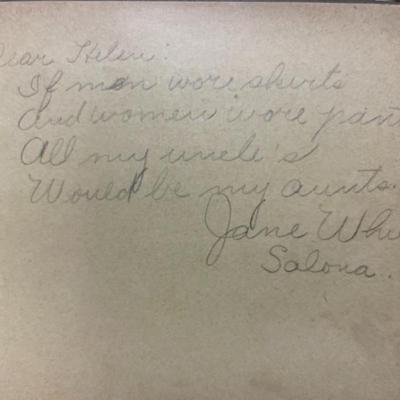 Dear Helen:
If men wore skirts
And women wore pant
All my uncle's
Would be my aunts.
Jane Whi
Salona.